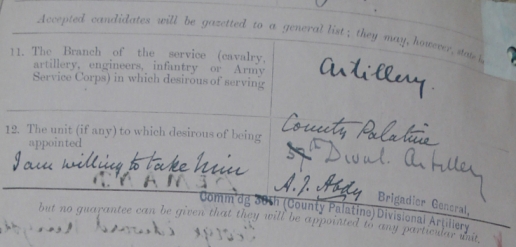 Accepted candidates will be gazetted to a general list; they may, however, state
11. The Branch of the service (cavalry,
artillery, engineers, infantry or Army
Service Corps) in which desirous of serving
Artillery.
12. The unit (if any) to which desirous of being
appointed
County Palatine
Divnl. Artillery
I am willing to take him
A. J. Abdy Brigadier General,
Comm'dg 30th (County Palatine) Divisional Artillery
but no guarantee can be given that they will be appointed to any particular unit.